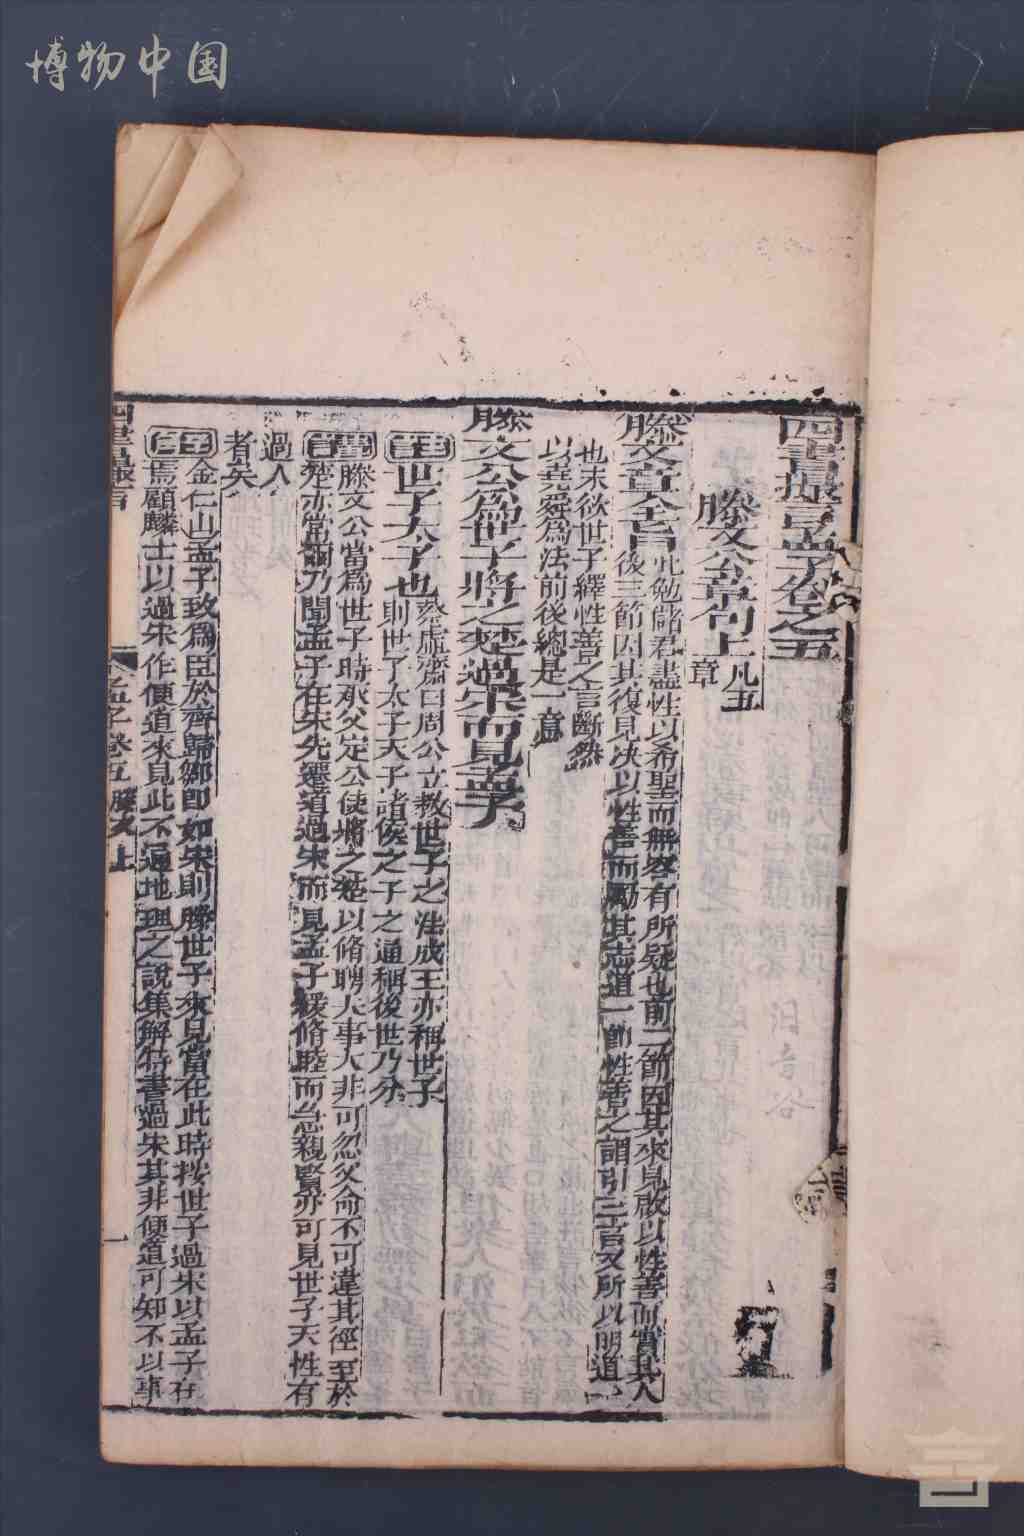 博物中国
四書撮言孟子卷之五
滕文公章句上
凡五
章
滕文章全旨
此勉儲君盡性以希聖而無容有所疑也前二節因其來見啟以性善而實其人
後三節因其復見决以性善而勵其志道一節性善之謂引三言又所以明道一
也末欲世子繹性善之言斷然
以堯舜為法前後總是一意
滕文公為世子將之楚過宋而見孟子
主世子太子也
蔡虛齋曰周公立教世子之法成王亦稱世子
則世子太子天子諸侯之子之通稱後世乃分
滕文公當為世子時承父定公使將之楚以脩聘大事大非可忽父命不可違其徑至於
楚亦常爾乃聞孟子在宋先遷道過宋而見孟子緩脩睦而急親賢亦可見世子天性有
過人
者矣
金仁山孟子致為臣於齊歸鄒即如宋則滕世子來見當在此時按世子過宋以孟子在
焉顧麟士以過宋作便道來見此不通地理之說集解特書過宋其非便道可知不以事
四書撮言
孟子卷五 滕文上
一